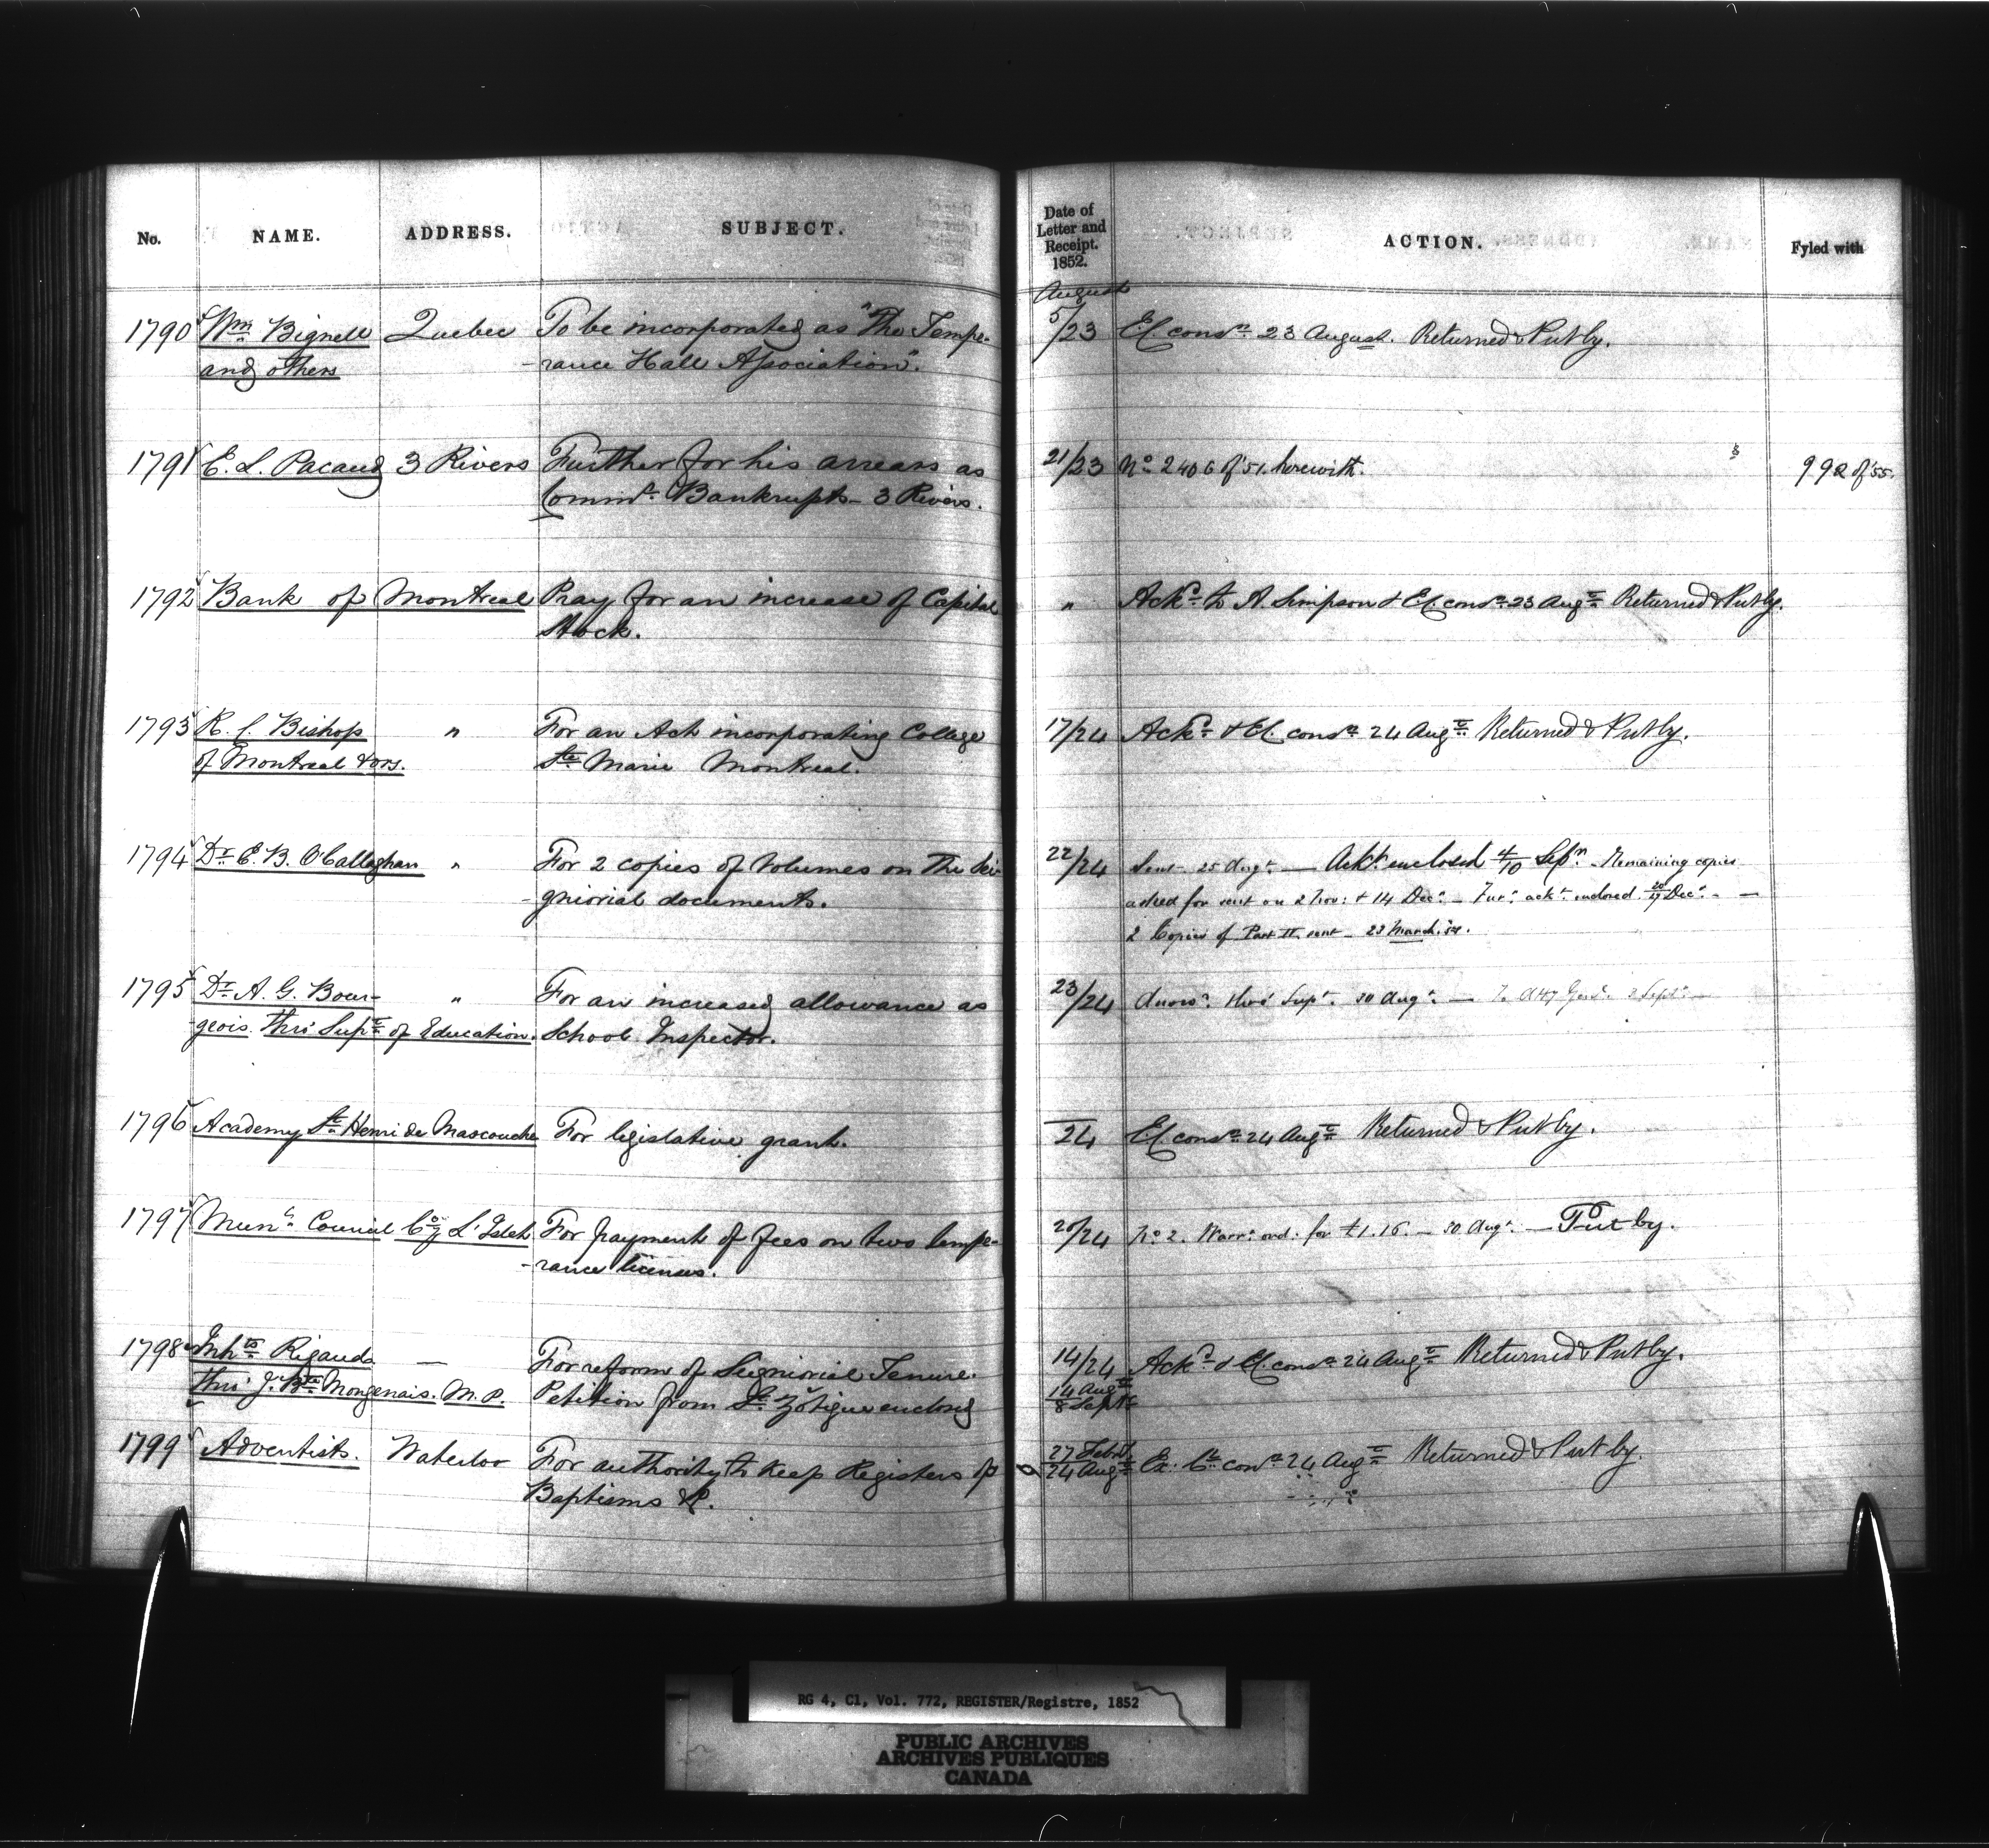 No. NAME. ADDRESS. SUBJECT. Date of Letter and Receipt. 1852. ACTION. Fyled with
August
1790 Wm Bignell Quebec To be incorporated as "The Tempe- 5/23 E.C. consn 23 August. Returned & Put by.
and others -rance Hall Association".
1791 E. L. Pacaud 3 Rivers Further for his arrears as 21/23 No 2406 of '51. herewith. 992 of '55.
Commr Bankrupts - 3 Rivers.
1792 Bank of Montreal Pray for an increase of Capital " Ackd to A. Simpson & E.C. consn 23 Augt Returned & Put by.
Stock.
1793 R. C. Bishop " For an Act incorporating College 17/24 Ackd & E.C. consn 24 Augt Returned & Put by.
of Montreal & ors. Ste Marie Montreal.
1794 Dr E. B. O'Callaghan " For 2 copies of Volumes on the Sei- 22/24 Sent 25 Augt — Ackt enclosed 4/10 Sepr. Remaining copies
-gniorial documents. asked for sent on 2 Nov: & 14 Decr — Fur: ackt endorsed Decr —
2 Copies of Part II sent — 23 March. 54.
1795 Dr A. G. Bour- " For an increased allowance as 23/24 Answd thro' Supt. 30 Augt — To Atty Genl. 2 Sept —
geois. thro' Supt of Education. School Inspector.
1796 Academy St Henri de Mascouche For legislative grant. —/24 E.C. consn 24 Augt Returned & Put by.
1797 Munl Council Co L'Islet For payment of fees on two tempe- 20/24 No 2. Warrt ord. for £1.16. — 30 Augt — Put by.
-rance licenses.
1798 Inhts Rigaud — For reform of Seigniorial Tenure. 14/24 Ackd & E.C. consn 24 Augt Returned & Put by.
thro' J. Bte Mongenais. M.P. Petition from St. Zotique enclosd 14 Augt/8 Septr
1799 Adventists. Waterloo For authority to keep Registers of 27 Feb/24 Augt Ex. Cl consn 24 Augt Returned & Put by.
Baptisms &c.
RG 4, C1, Vol. 772, REGISTER/Registre, 1852
PUBLIC ARCHIVES
ARCHIVES PUBLIQUES
CANADA